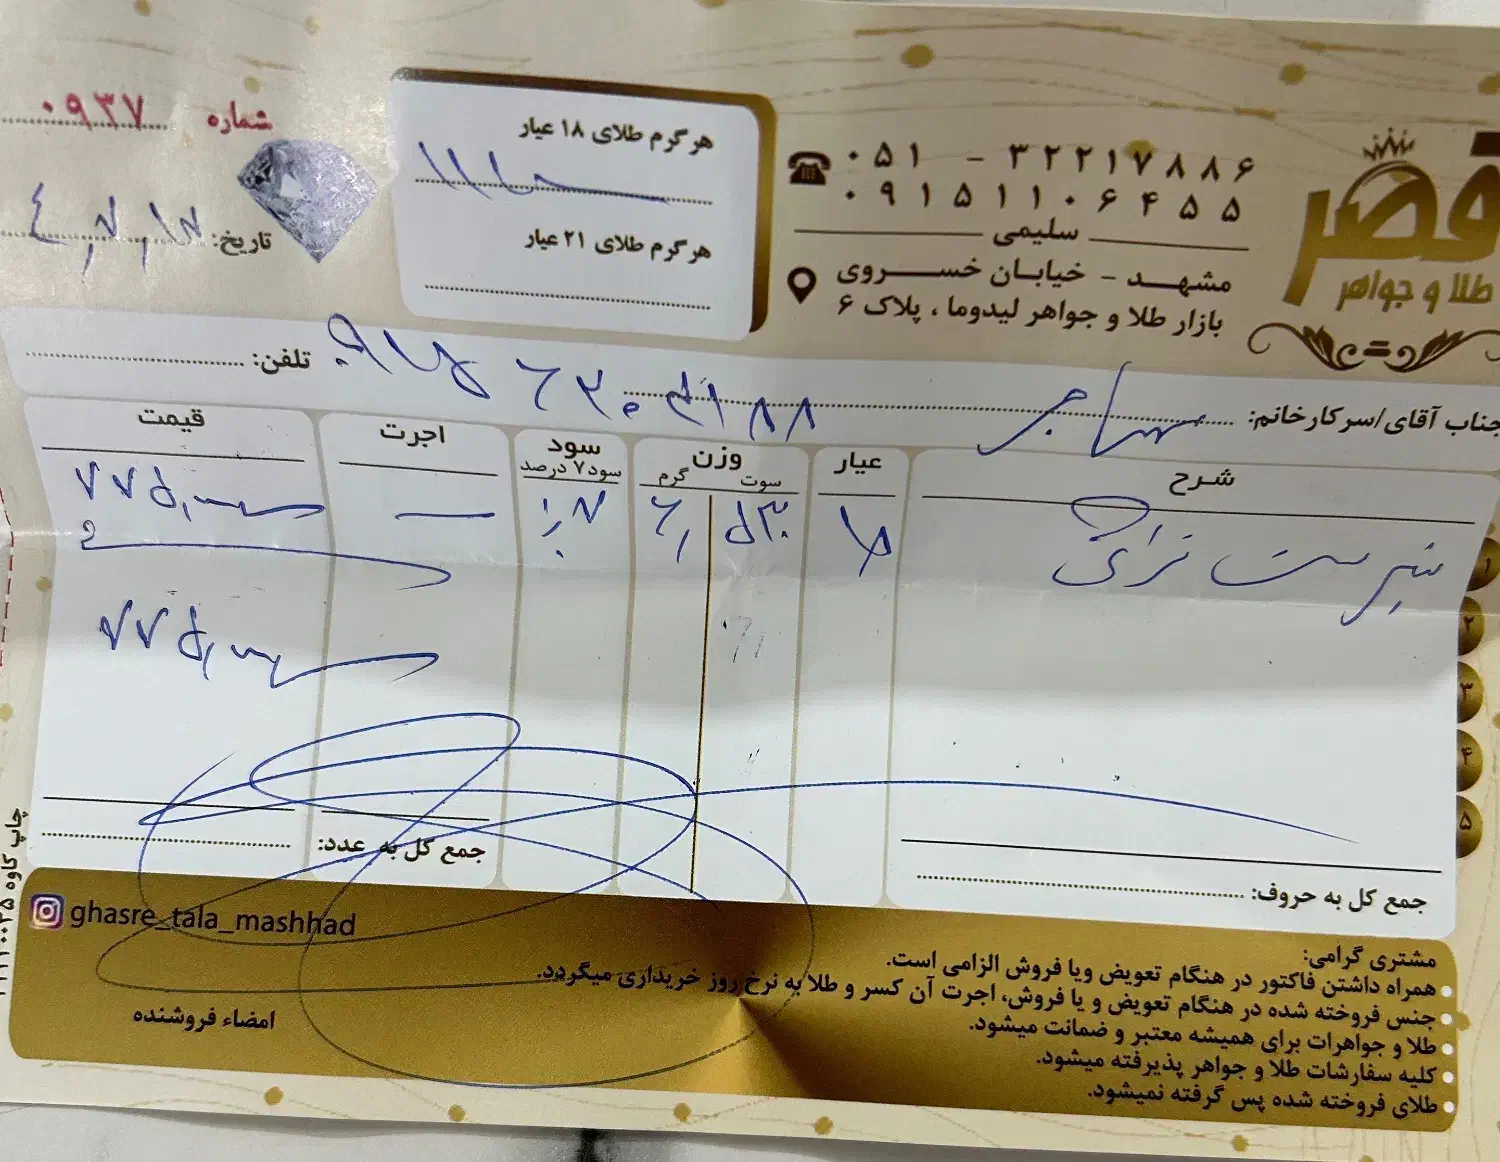 قصر
طلا و جواهر
۰۵۱ - ۳۲۲۱۷۸۸۶
۰۹۱۵۱۱۰۶۴۵۵
سلیمی
مشهد - خیابان خسروی
بازار طلا و جواهر لیدوما ، پلاک ۶
هر گرم طلای ۱۸ عیار
هر گرم طلای ۲۱ عیار
شماره ۰۹۳۷
تاریخ: ۴٫۷٫۱۲
جناب آقای/سرکارخانم: مهاجر
تلفن:
شرح عیار وزن سود اجرت قیمت
سوت گرم سود ۷ درصد
۱ ۱۸ ۵۳۰ ۶٫ ٪۷ —
۲
۳
۴
۵
جمع کل به عدد:
جمع کل به حروف:
مشتری گرامی:
همراه داشتن فاکتور در هنگام تعویض ویا فروش الزامی است.
جنس فروخته شده در هنگام تعویض و یا فروش، اجرت آن کسر و طلا به نرخ روز خریداری میگردد.
طلا و جواهرات برای همیشه معتبر و ضمانت میشود.
کلیه سفارشات طلا و جواهر پذیرفته میشود.
طلای فروخته شده پس گرفته نمیشود.
ghasre_tala_mashhad
امضاء فروشنده
چاپ کاوه